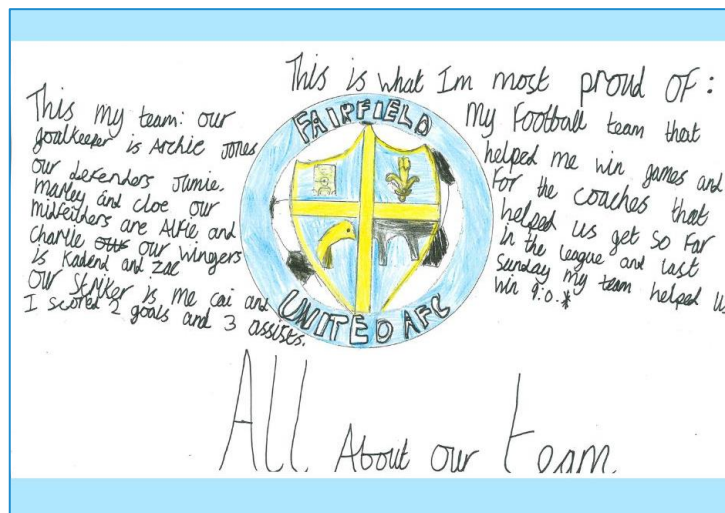 This is what Im most proud of:
This my team: our
goalkeeper is Archie Jones
our defenders Jamie.
marley and cloe our
midfeilders are Alfie and
Charlie our wingers
is Kadend and Zac
our Striker is me cai and
I scored 2 goals and 3 assists.
FAIRFIELD
UNITED AFC
My Football team that
helped me win games and
For the coaches that
helped us get so far
in the league and last
Sunday my team helped us
win 9:0.*
All About our team.